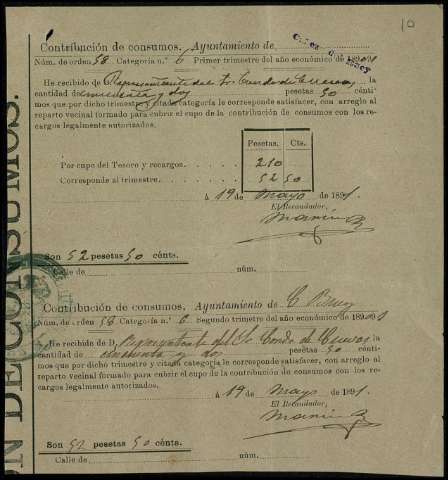 10
Contribución de consumos. Ayuntamiento de
Núm. de orden 58 Categoría n.º 6 Primer trimestre del año económico de 189
He recibido de Representante del la
cantidad de cincuenta y dos pesetas 50 cénti-
mos que por dicho trimestre y citada categoría le corresponde satisfacer, con arreglo al
reparto vecinal formado para cubrir el cupo de la contribución de consumos con los re-
cargos legalmente autorizados.
Pesetas. Cts.
Por cupo del Tesoro y recargos. 210
Corresponde al trimestre. 52 50
á 19 de Mayo de 1891.
El Recaudador,
Son 52 pesetas 50 cénts.
Calle de núm.
Contribución de consumos. Ayuntamiento de
Núm. de orden 58 Categoría n.º 6 Segundo trimestre del año económico de 189
He recibido de D. Representante del Sr. Conde de Cuevas la
cantidad de cincuenta y dos pesetas 50 cénti-
mos que por dicho trimestre y citada categoría le corresponde satisfacer, con arreglo al
reparto vecinal formado para cubrir el cupo de la contribución de consumos con los re-
cargos legalmente autorizados.
á 19 de Mayo de 1891.
El Recaudador,
Son 52 pesetas 50 cénts.
Calle de núm.
N DE CONSUMOS.